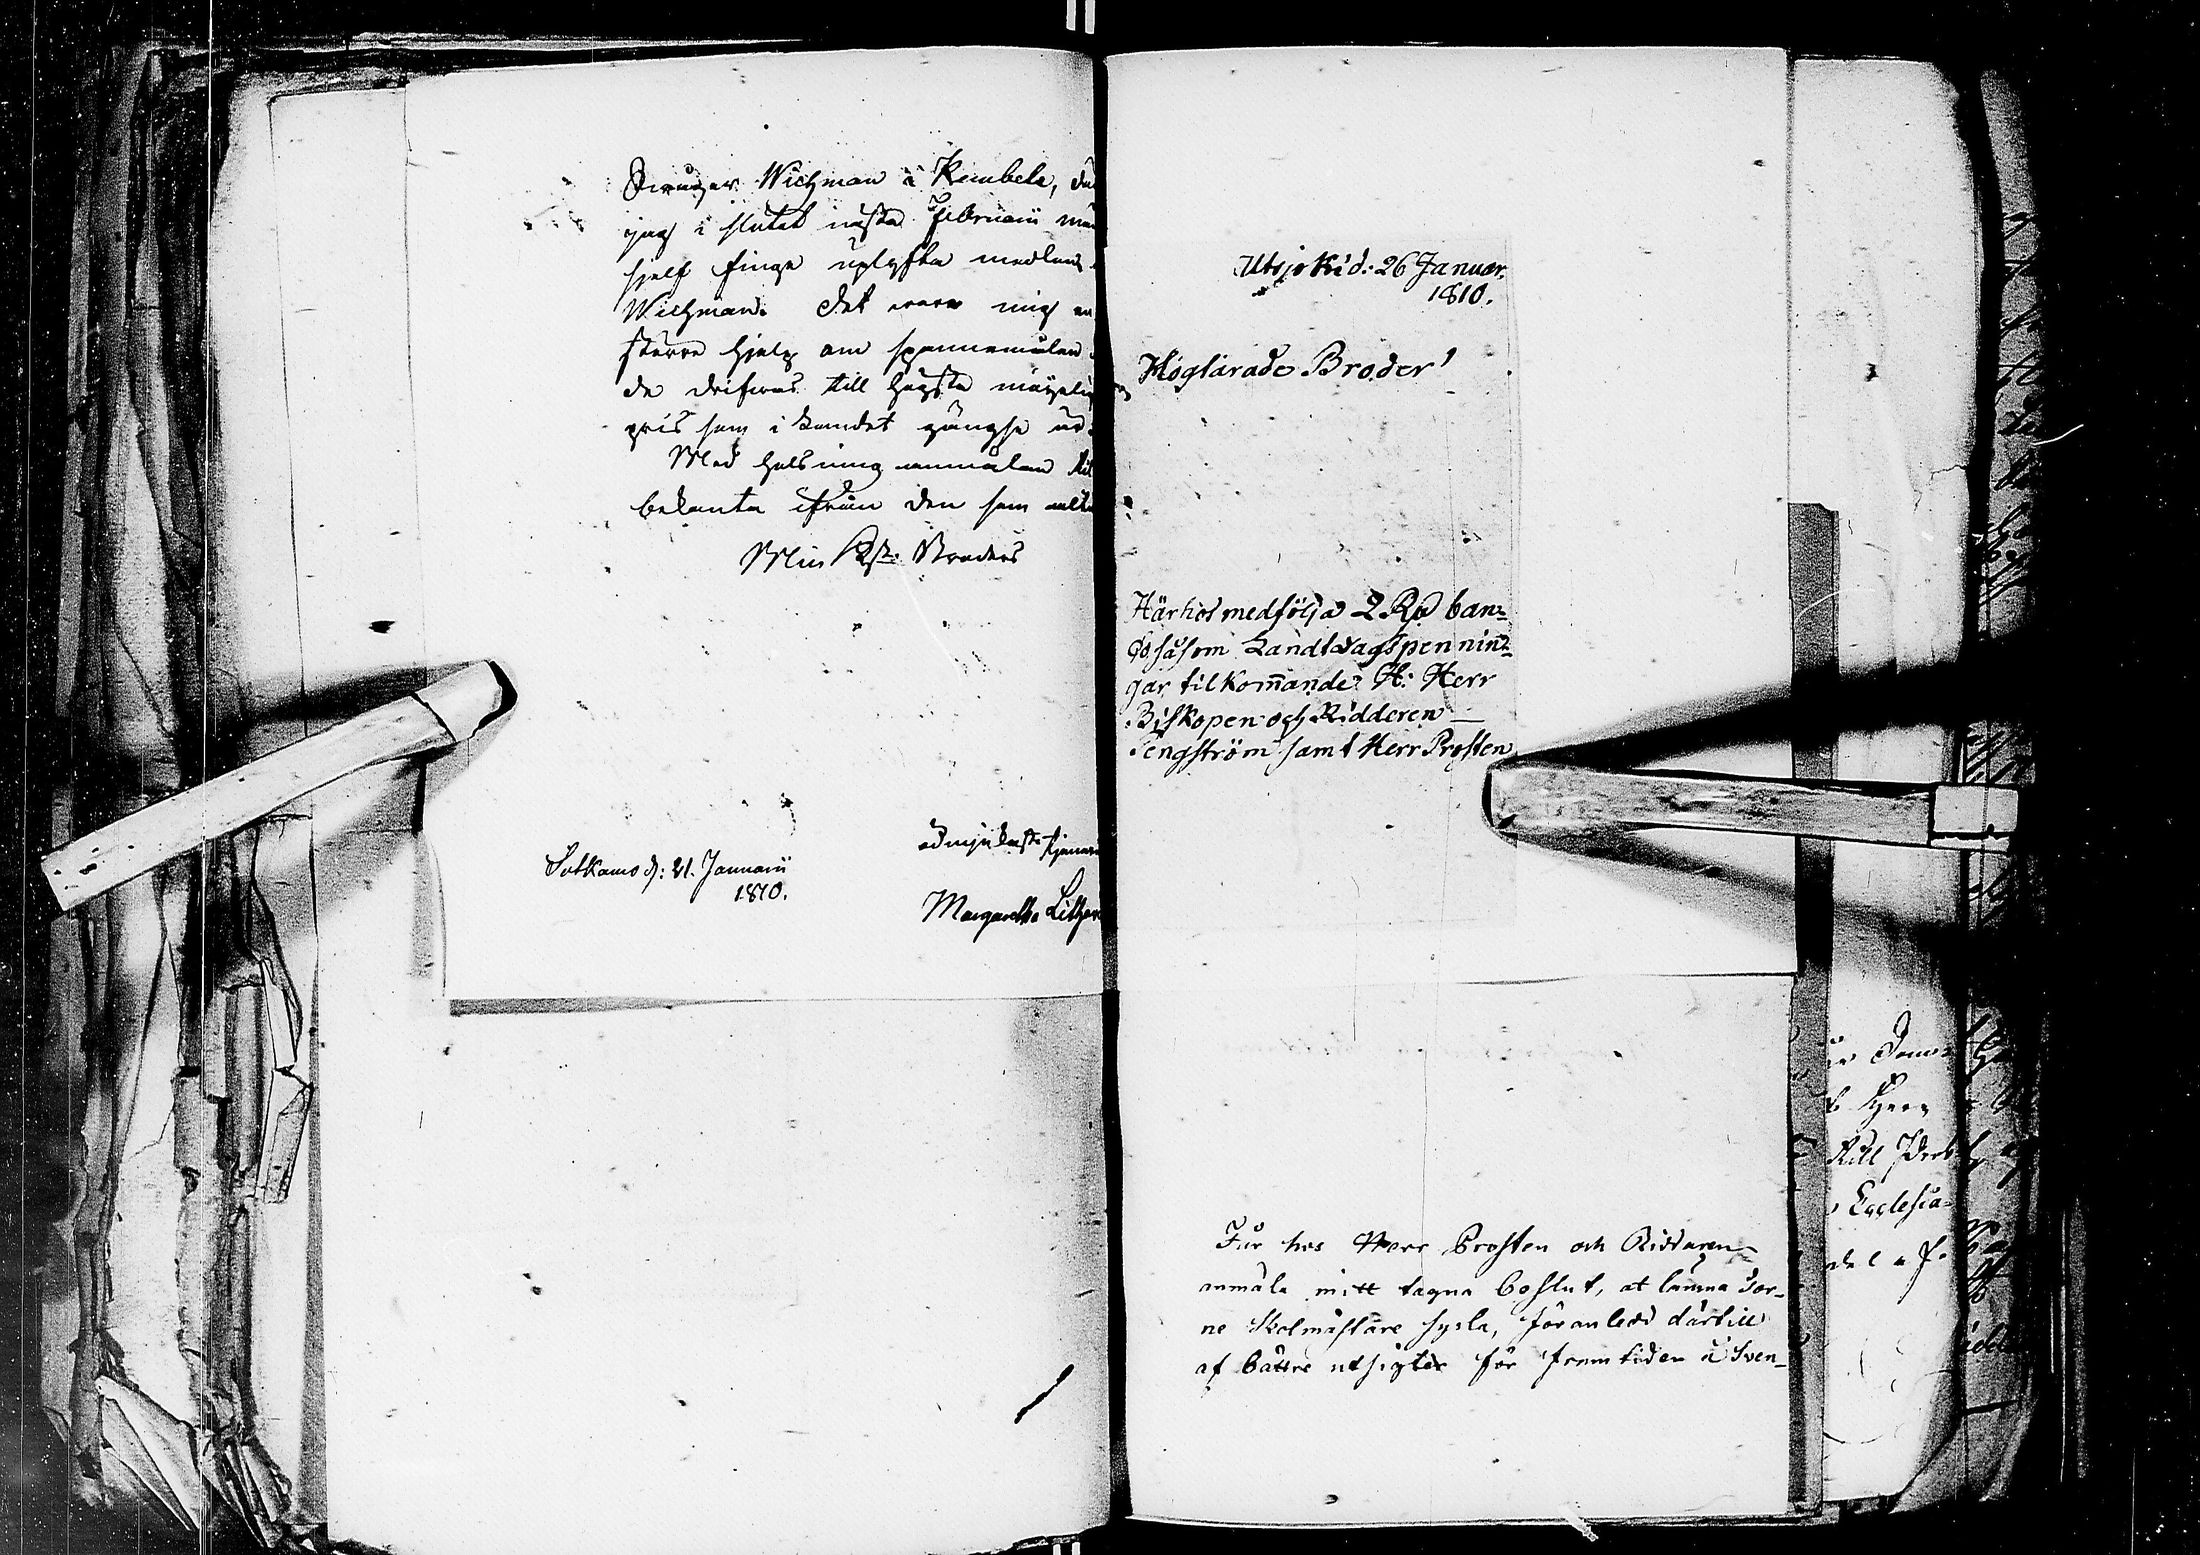 Swåger Wichman i Kembele, då
jag i slutet nästa Februarii må
sjelf finge uplyfta medlen
Wichman. Det vore mig en
större hjelp om spannemålen
de drifvas till högsta möyeli
pris som i landet gångse är
Med helsning anmälan til
bekanta ifrån den som allt
Min K. Broders
ödmjukaste tjenar
Sotkamo d: 21. Januarii
1810.
Margaretha Lithov
Utsjoki d: 26 Januar.
1810.
Höglärade Broder!
Härhos medfölja 2 Rd ban=
co såsom Landtdagspennin=
gar tilkommande H: Herr
Biskopen och Ridderen
Tengström samt Herr Prosten
Får hos Herr Prosten och Riddaren
anmäla mitt tagna beslut, at lämna Tor-
ne Skolmästare sysla, föranledd därtill
af bättre utsigter för framtiden i Sven-
Ecclesia-